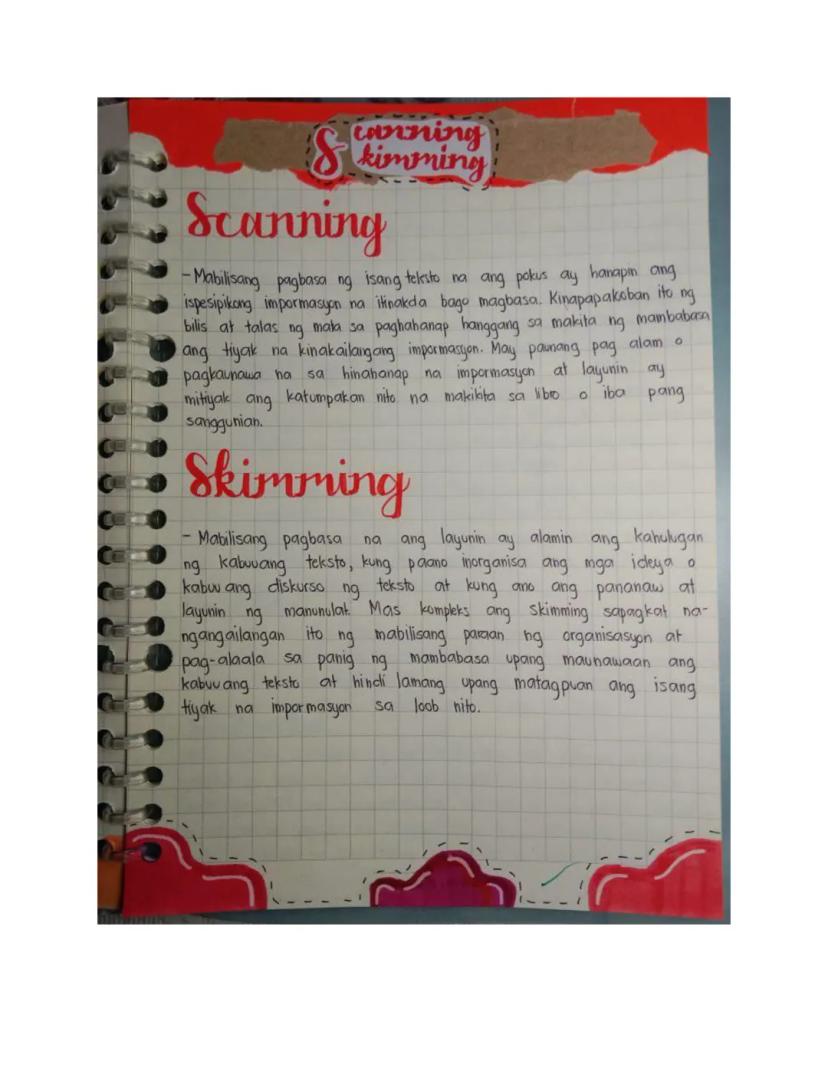 Scanning
Skimming
Scanning
- Mabilisang pagbasa ng isang teksto na ang pokus ay hanapin ang
ispesipikong impormasyon na itinakda bago magbasa. Kinapapakoban ito ng
bilis at talas ng mata sa paghahanap hanggang sa makita ng mambabasa
ang tiyak na kinakailangang impormasyon. May paunang pag alam o
pagkaunawa na sa hinahanap na impormasyon at layunin ay
mitiyak ang katumpakan nito na makikita sa libro o iba pang
sanggunian.
Skimming
- Mabilisang pagbasa na ang layunin ay alamin ang kahulugan
ng kabuuang teksto, kung paano inorganisa ang mga ideya o
kabuuang diskurso ng teksto at kung ano ang pananaw at
layunin ng manunulat. Mas kompleks ang skimming sapagkat na-
ngangailangan ito ng mabilisang paraan ng organisasyon at
pag-alaala sa panig ng mambabasa upang maunawaan ang
kabuuang teksto at hindi lamang upang matagpuan ang isang
tiyak na impormasyon sa loob nito.